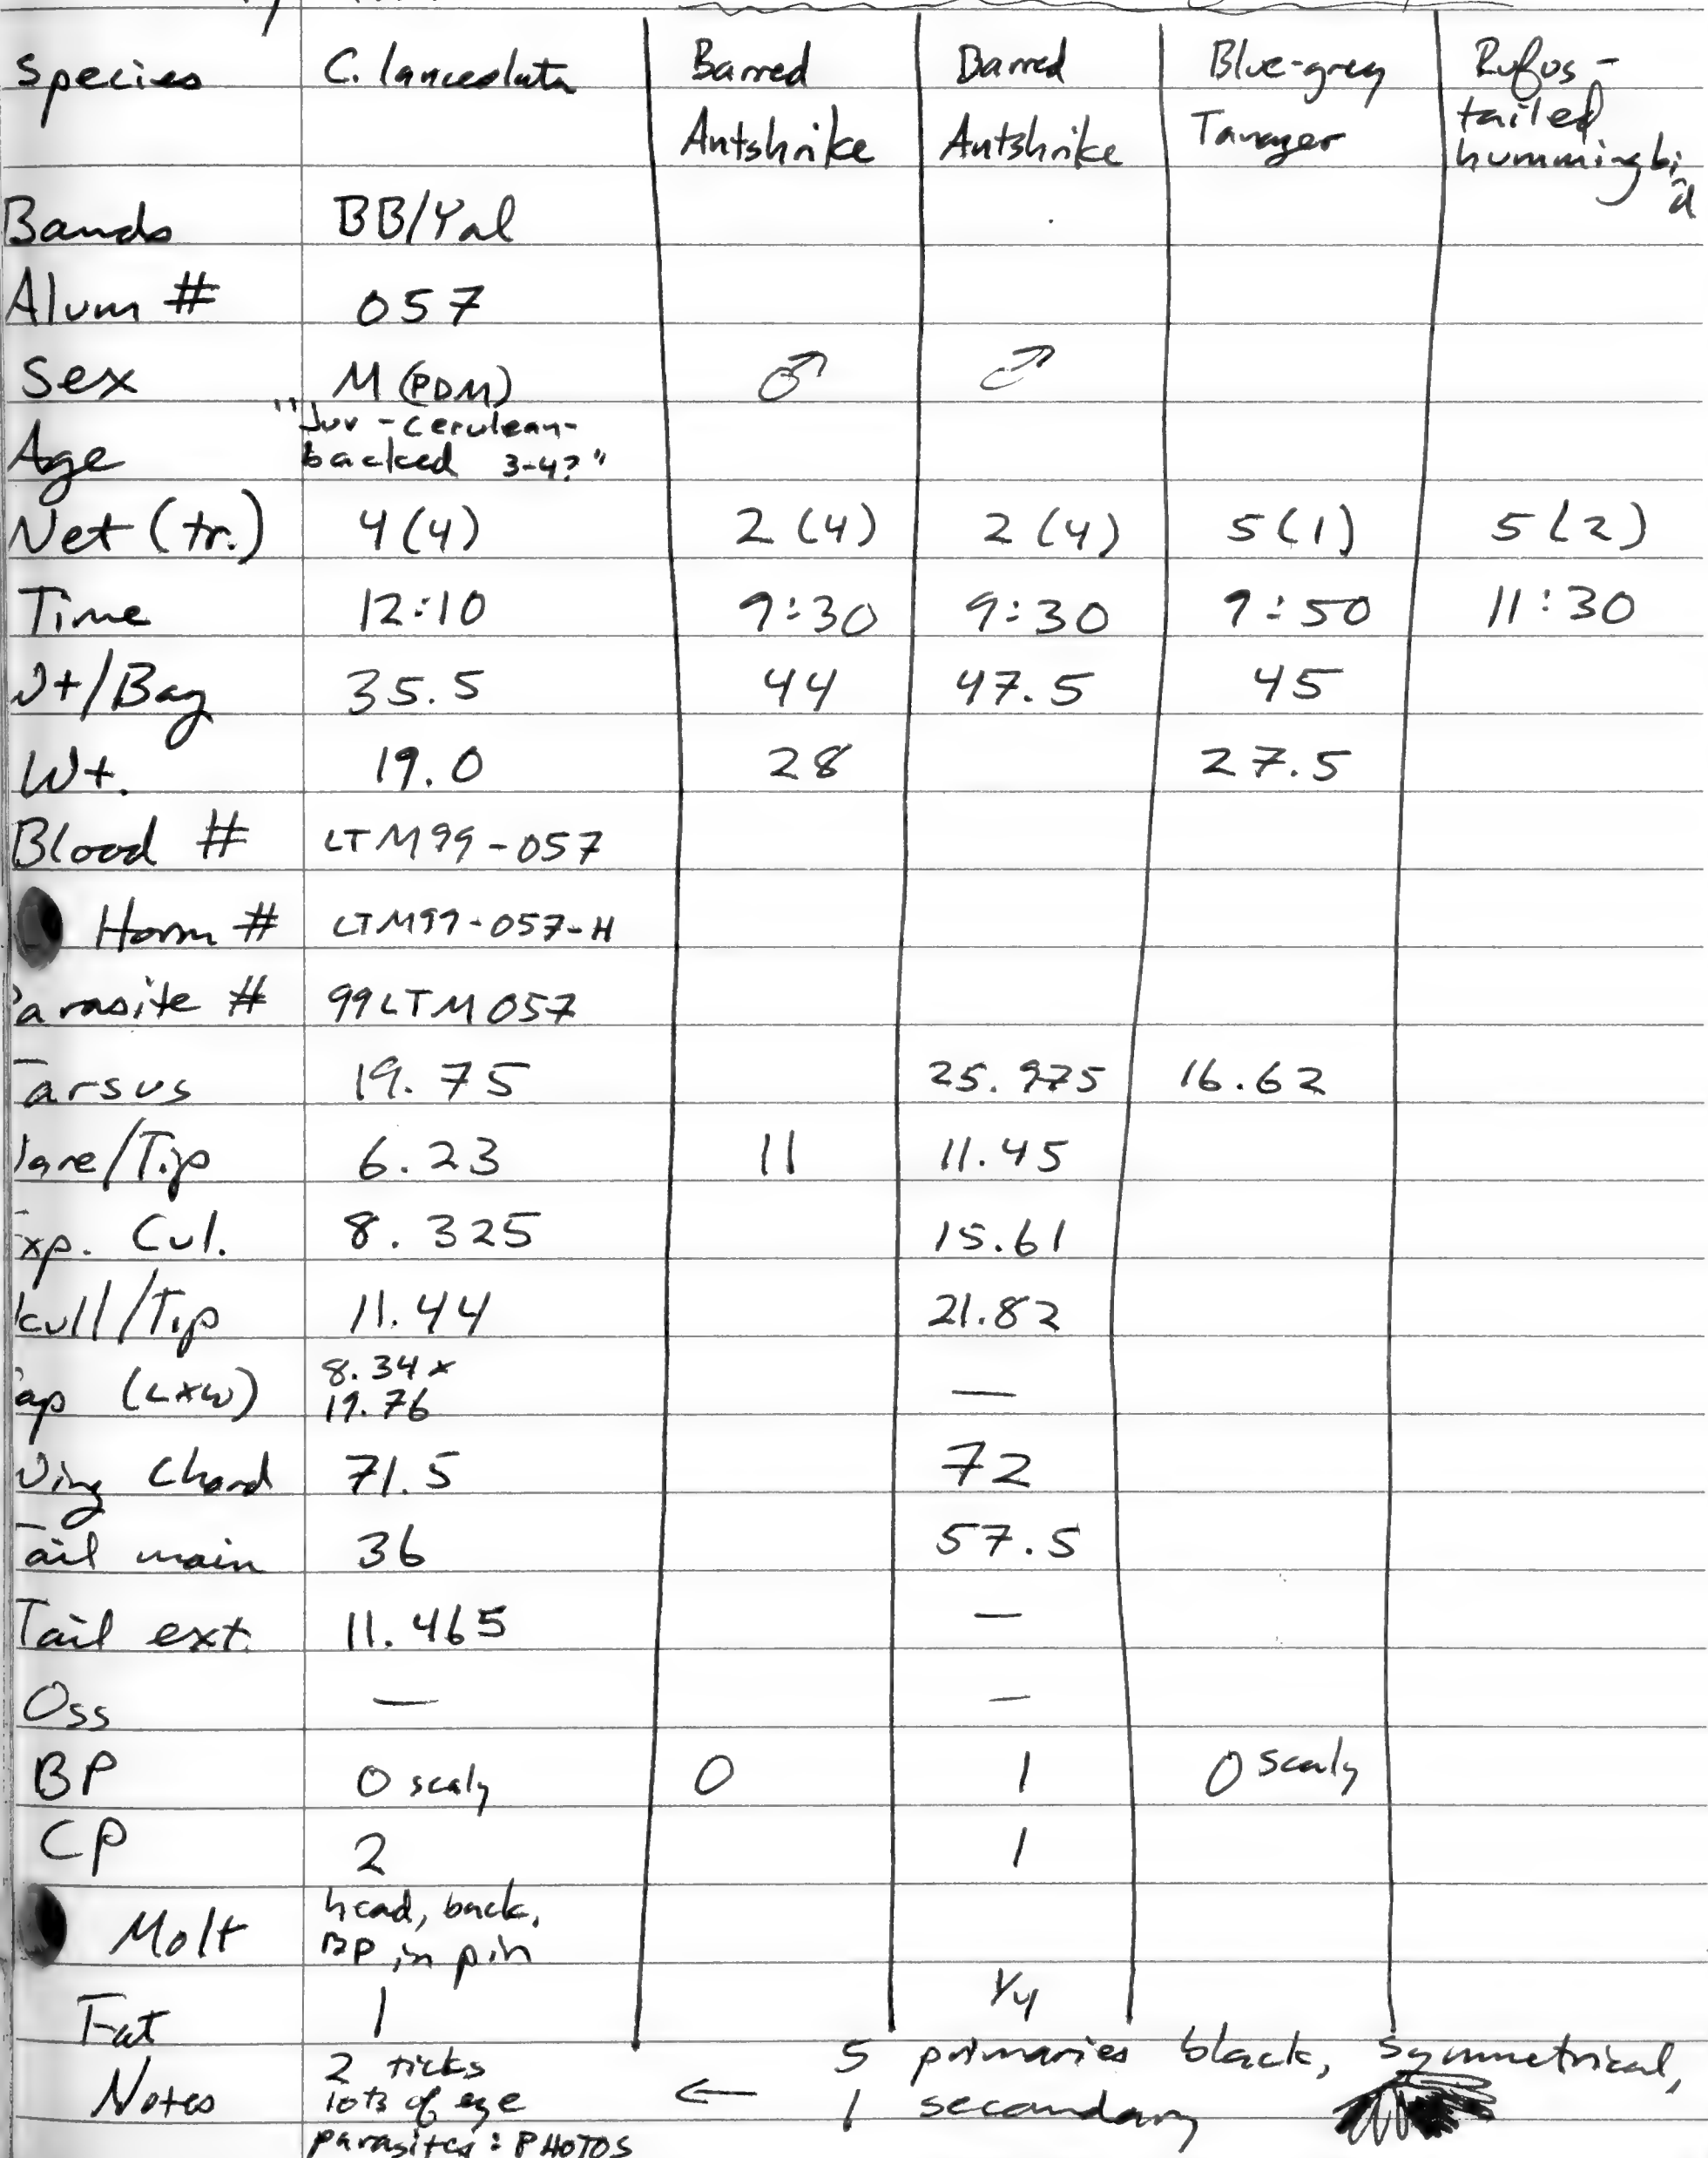 Species C. lanceolata Barred Barred Blue-grey Rufos-
Antshrike Antshrike Tanager tailed
hummingbird
Bands BB/Yal
Alum # 057
Sex M (PDM) ♂ ♂
Age "Juv - cerulean-
backed 3-4?"
Net (tr.) 4 (4) 2 (4) 2 (4) 5 (1) 5 (2)
Time 12:10 9:30 9:30 9:50 11:30
Wt/Bag 35.5 44 47.5 45
Wt. 19.0 28 27.5
Blood # LTM99-057
Horm # LTM99-057-H
Parasite # 99LTM057
Tarsus 19.75 25.975 16.62
Nare/Tip 6.23 11 11.45
Exp. Cul. 8.325 15.61
Skull/Tip 11.44 21.82
Gap (LxW) 8.34 x —
19.76
Wing Chord 71.5 72
Tail main 36 57.5
Tail ext. 11.465 —
Oss — —
BP 0 scaly 0 1 0 scaly
CP 2 1
Molt head, back,
BP in pin
Fat 1 1/4
Notes 2 ticks ← 5 primaries black, symmetrical,
lots of eye 1 secondary
parasites: PHOTOS